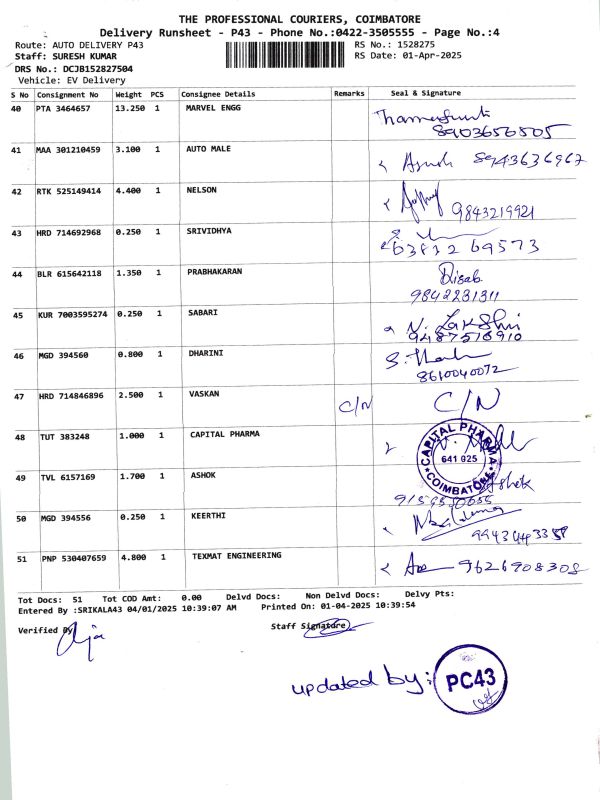 THE PROFESSIONAL COURIERS, COIMBATORE
Delivery Runsheet - P43 - Phone No.:0422-3505555 - Page No.:4
Route: AUTO DELIVERY P43
RS No.: 1528275
Staff: SURESH KUMAR
RS Date: 01-Apr-2025
DRS No.: DCJB152827504
Vehicle: EV Delivery
S No Consignment No Weight PCS Consignee Details Remarks Seal & Signature
40 PTA 3464657 13.250 1 MARVEL ENGG
8903656505
41 MAA 301210459 3.100 1 AUTO MALE 8943636967
42 RTK 525149414 4.400 1 NELSON
9843219921
43 HRD 714692968 0.250 1 SRIVIDHYA
63812 69573
44 BLR 615642118 1.350 1 PRABHAKARAN
9842231311
45 KUR 7003595274 0.250 1 SABARI N. Lakshi
9487516910
46 MGD 394560 0.800 1 DHARINI
8610040072
47 HRD 714846896 2.500 1 VASKAN C/N C/N
48 TUT 383248 1.000 1 CAPITAL PHARMA
CAPITAL PHARMA
641 025
COIMBATORE
49 TVL 6157169 1.700 1 ASHOK Ashok
50 MGD 394556 0.250 1 KEERTHI
51 PNP 530407659 4.800 1 TEXMAT ENGINEERING 9626908308
Tot Docs: 51 Tot COD Amt: 0.00 Delvd Docs: Non Delvd Docs: Delvy Pts:
Entered By :SRIKALA43 04/01/2025 10:39:07 AM Printed On: 01-04-2025 10:39:54
Verified By
Staff Signature
updated by:
PC43